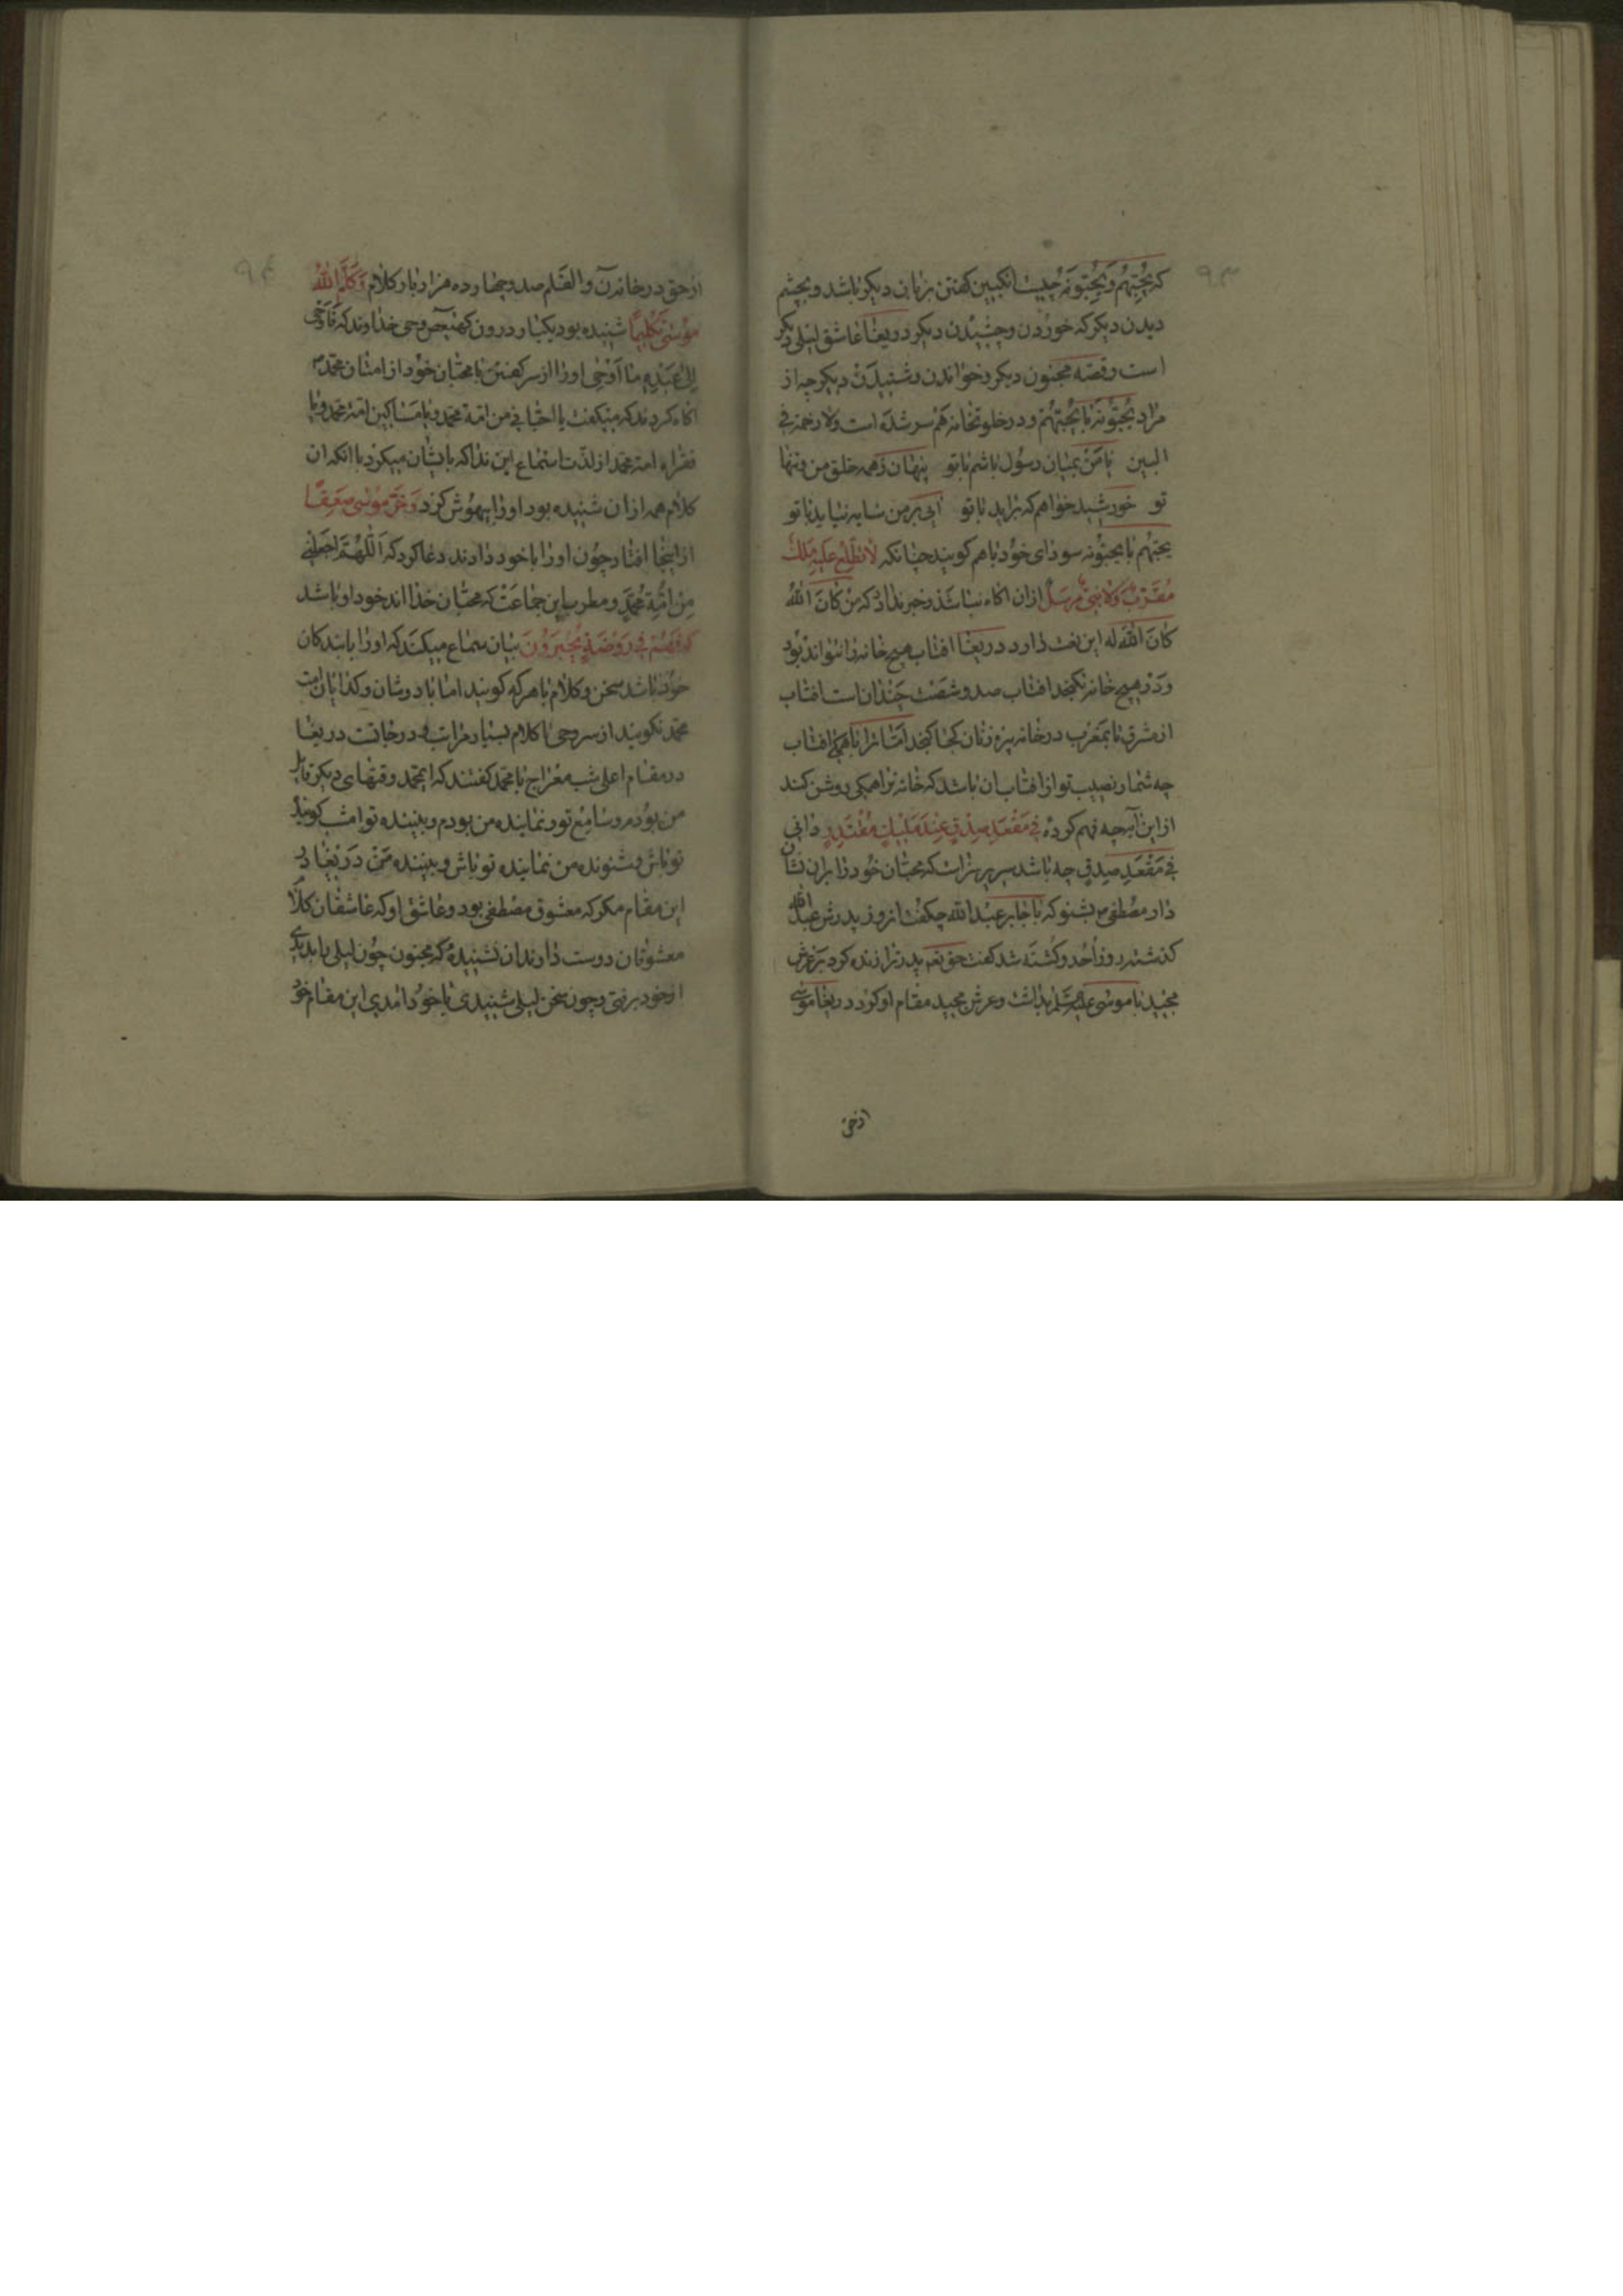 ۹۳
که یُحِبُّهُم وَیُحِبُّونَهُ چیست انکبین کفتن زبانی دیکر باشد و بچشم
دیدن دیکر که خوردن و چشیدن دیکر دریغا عاشق لیلی دیکر
است و قصه مجنون دیکر و خواندن و شنیدن دیکر چه از
مراد یُحِبُّونَهُ با یُحِبُّهُم و در خلوتخانه هم سر شده است ولا زحمه فی
البین با من بمیان رسول باشم با تو پنهان زهمه خلق من و تنها
تو خورشید خواهم که براید با تو ایی بر من سایه نیاید با تو
یحبهم با یحبونه سودای خود با هم کویند چنانکه لا یطّلع علیه ملک
مقرّب ولا نبی مرسل ازان اکاه نباشد و خبر ندارد که من کان الله
کان الله له این نعت دارد دریغا افتاب هیچ خانه را نتواند بود
و در هیچ خانه نکنجد افتاب صد و شصت چندان است افتاب
از مشرق تا بمغرب در خانه پیره زنان کجا کنجد امّا ترا با همکی افتاب
چه شمار نصیب تو از افتاب ان باشد که خانه ترا همکی روشن کند
از این آیه چه فهم کردهٔ فی مقعد صدق عند ملیک مقتدر دانی
فی مقعد صدق چه باشد سریر سرّاست که محبان خود را بران نشان
دار مصطفی م بشنو که با جابر عبد الله چکفت انروز پدرش عبد الله
کذشته روز اُحد و کشته شد کفت حق تعم پدر ترا زنده کرد بر عرش
مجید با موسی علیه السلم بداشت و عرش مجید مقام او کرد دریغا موسی
از حق
۹۴
از حق در خاندن والقلم صد و چهارده هزار بار کلام وَکَلَّمَ اللهُ
موسی تکلیماً شنیده بود یکبار درون کهیعص وحی خداوند که فَاَوحی
اِلی عَبدِهِ ما اَوحی اورا از سر کفتن با محبّان خود از امتان محمد م
اکاه کردند که میکفت یا احبّایی من امة محمد و یا مساکین امة محمد و یا
فقراء امة محمد از لذّت استماع این ندا که با یشان میکرد با انکه ان
کلام همه ازان شنیده بود اورا بیهوش کرد وَخَرَّ موسی صَعِقاً
از اینجا افتاد چون اورا با خود دادند دعا کرد که اَللّهُمَّ اجعَلنی
مِن اُمَّةِ مُحَمَّدٍ و مطرب این جماعت که محبّان خدا اند خود او باشد
که فَهُم فی رَوضَةٍ یُحبَرونَ بیان سماع میکند که اورا با بندکان
خود باشد سخن و کلام با هر که کویند اما با دوستان و کدایان امت
محمد نکویند از سر وحی تا کلام بسیار مراتب و درجاتت دریغا
در مقام اعلی شب معراج با محمد کفتند که ای محمد وقتهای دیکر قایل
من بودم و سامع تو و نماینده من بودم و بیننده تو امشب کوینده
تو باش و شنونده من نماینده تو باش و بیننده مَن دریغا در
این مقام مکر که معشوق مصطفی بود و عاشق او که عاشقان کلام
معشوقان دوست دارند ان نشنیدهٔ که مجنون چون لیلی را بدیدی
از خود برفتی و چون سخن لیلی شنیدی با خود امدی این مقام خود